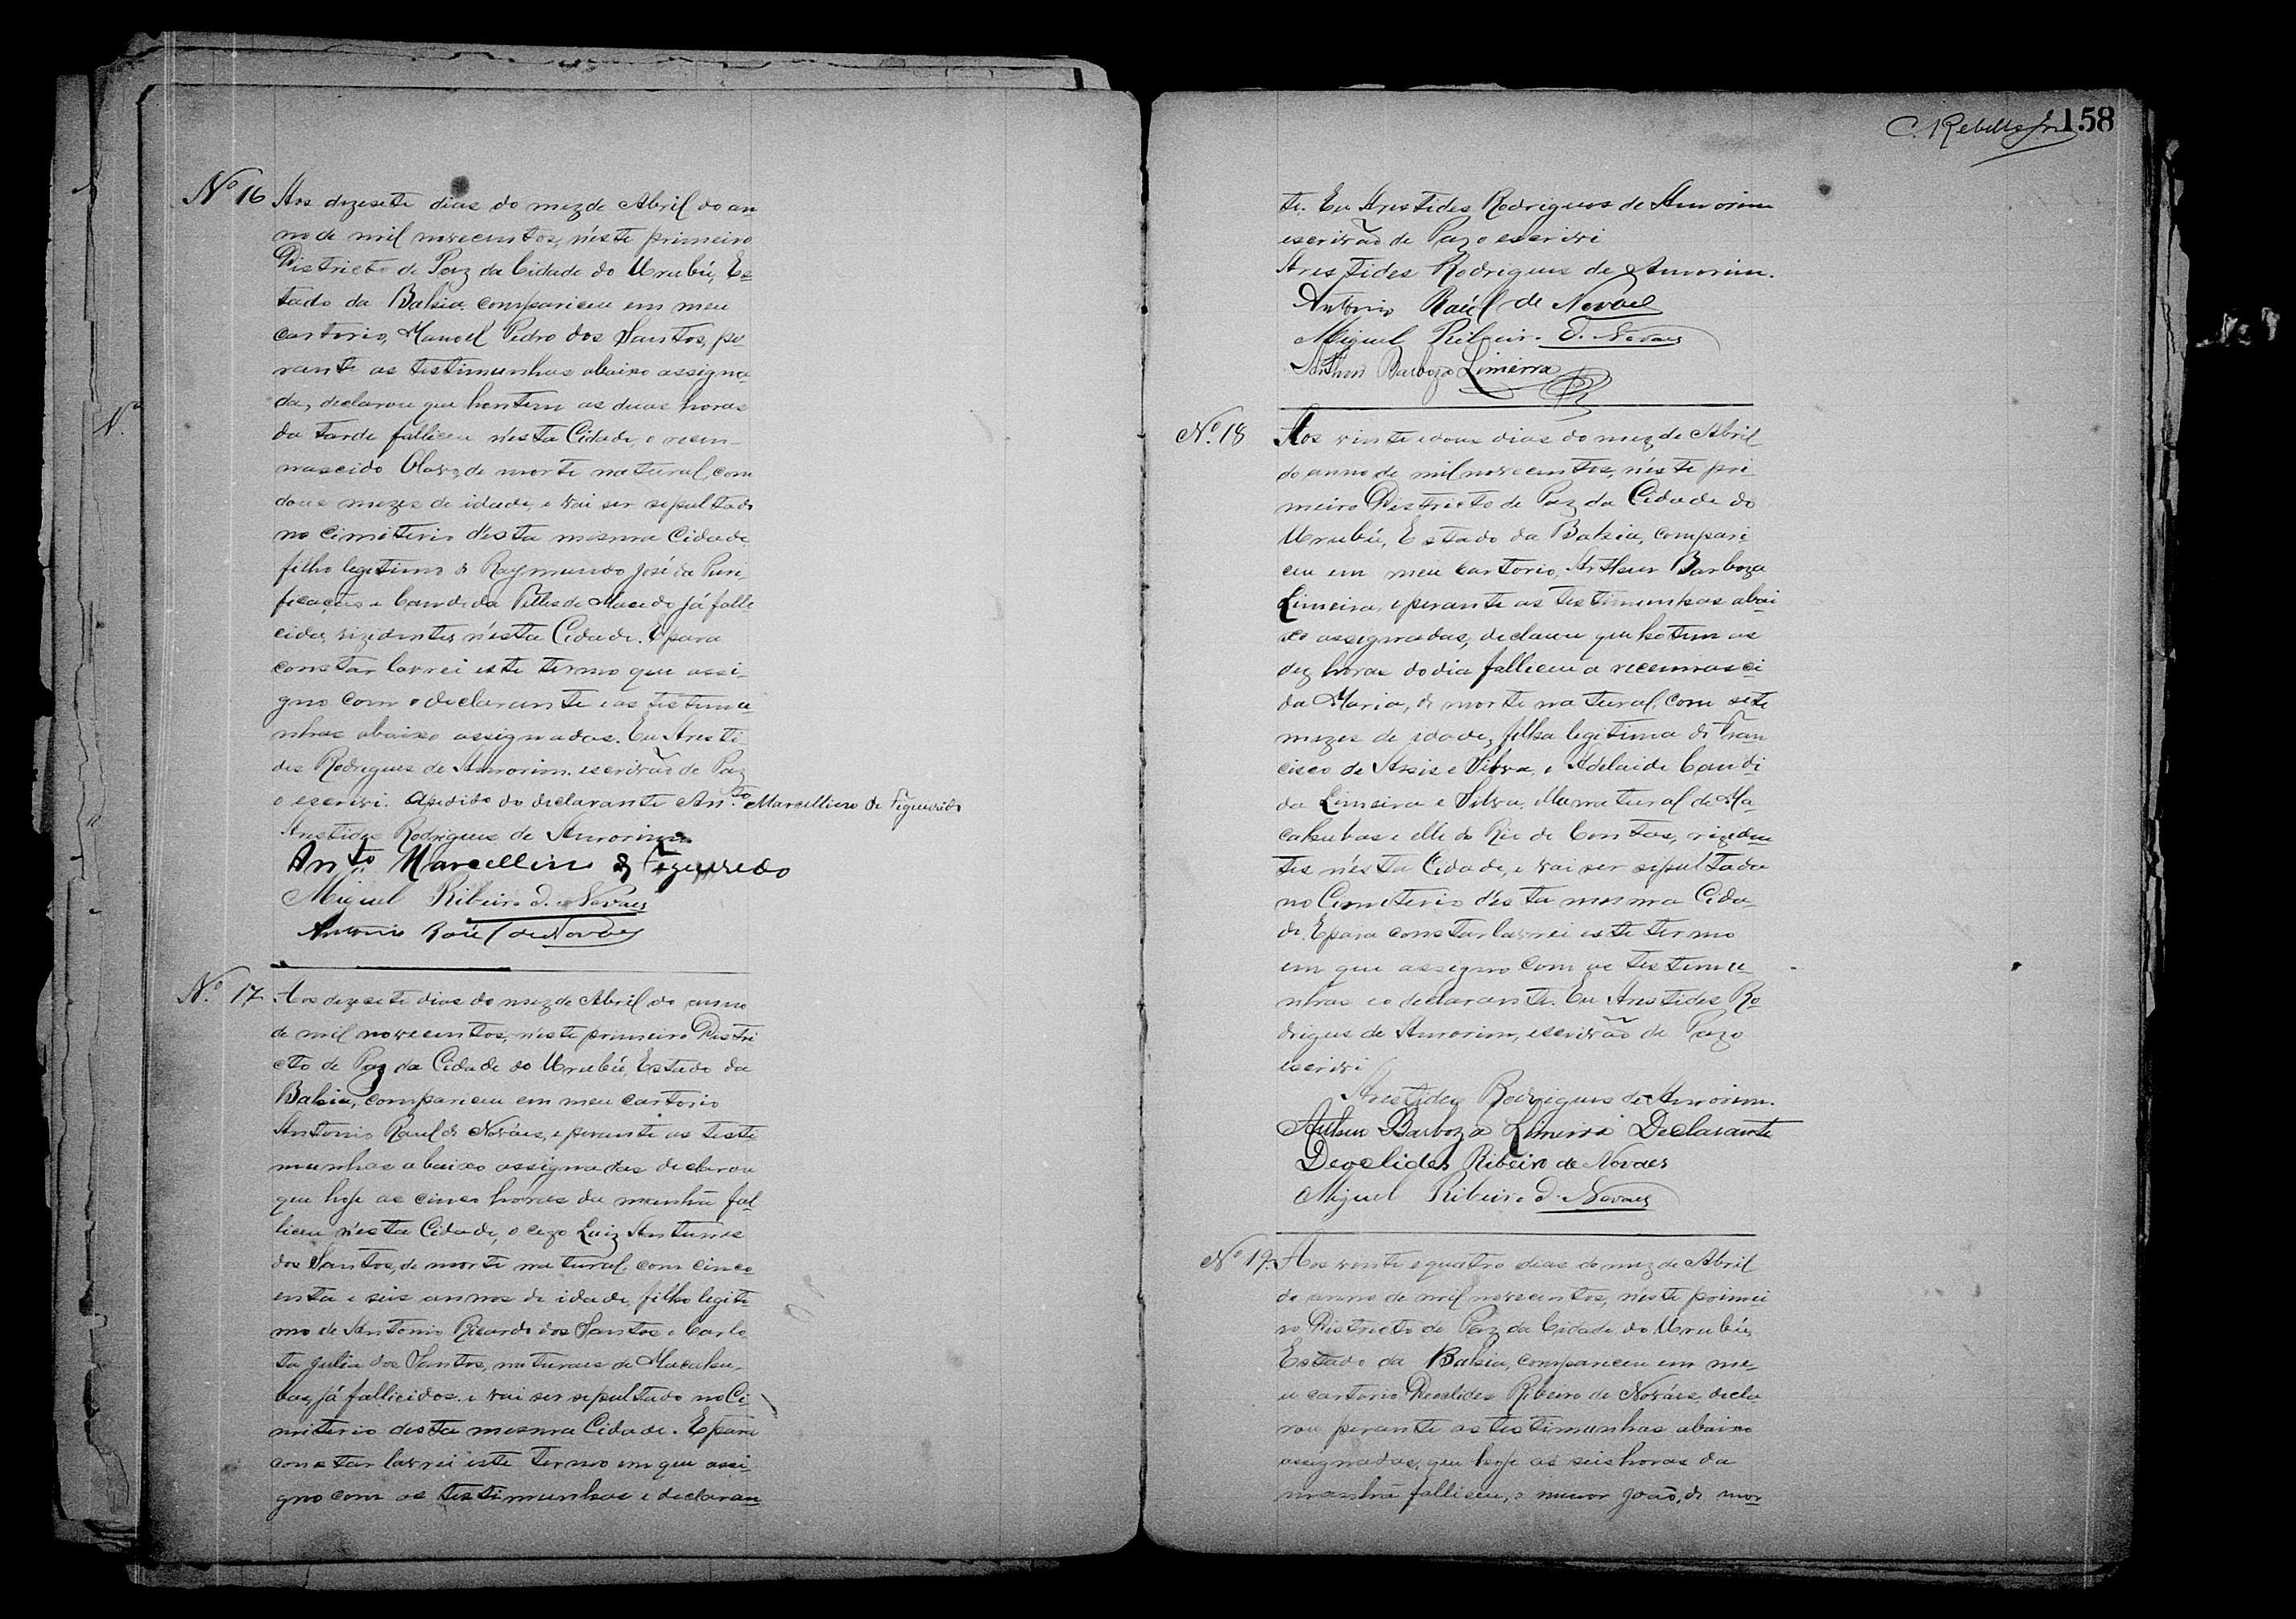 Nº 16 Aos dezesete dias do mez de Abril do an
no de mil novecentos, n'este primeiro
Districto de Paz da Cidade do Urubú, Es
tado da Bahia compareceu em meu
cartorio, Manoel Pedro dos Santos, pe
rante as testimunhas abaixo assigna
da, declarou que hontem as duas horas
da tarde falleceu n'esta Cidade, o recem-
nascido Olavo, de morte natural, com
dous mezes de idade, e vai ser sepultado
no Cimiterio d'esta mesma Cidade
filho legitimo de Raymundo José da Puri
ficação e Candida Telles de Macedo já falle
cida, rizidentes n'esta Cidade. E para
constar lavrei este termo que assi-
gno com o declarante e as testimu
nhas abaixo assignadas. Eu Aresti
des Rodrigues de Amorim escrivão de Paz
o escrivi. Apedido do declarante Anto. Marcellino de Figueredo
Arestides Rodrigues de Amorim
Anto. Marcellino de Figueredo
Miguel Ribeiro d. Novaes
Antonio Raúl de Novaes
Nº 17 Aos dezesete dias do mez de Abril do anno
de mil novecentos, n'este primeiro Distri
cto de Paz da Cidade do Urubú, Estado da
Bahia, compareceu em meu cartorio
Antonio Raul de Nováes, e perante as teste
munhas abaixo assignadas declarou
que hoje as cinco horas da manhã fal
leceu n'esta Cidade, o cego Luiz Antunes
dos Santos, de morte natural, com cinco
enta e seis annos de idade, filho legiti
mo de Antonio Ricardo dos Santos e Carlo
ta Julia dos Santos, naturaes de Macahu-
bas, já fallicidos. e vai ser sepultado no Ci
miterio desta mesma Cidade. E para
constar lavrei este termo em que assi-
gno com as testimunhas e declaran
C. Rebello Jnr. 158
te. Eu Arestides Rodrigues de Amorim
escrivão de Paz o escrivi
Arestides Rodrigues de Amorim.
Antonio Raúl de Novaes
Miguel Ribeiro d. Novaes
Arthur Barboza Limeira
Nº. 18 Aos vinte e dous dias do mez de Abril
do anno de mil novecentos, n'este pri
meiro Districto de Paz da Cidade do
Urubú, Estado da Bahia, compare
ceu em meu cartorio, Arthur Barboza
Limeira, e perante as testimunhas abai
xo assignadas, declarou que hotem as
dez horas do dia falleceu a recemnasci
da Maria, de morte natural, com sete
mezes de idade, filha legitima de Fran
cisco de Assis e Silva, e Adelaide Candi
da Limeira e Silva, ella natural de Ma
cahubas e elle do Rio de Contas, rizeden
tes n'esta Cidade, e vai ser sepultada
no Cemeterio d'esta mesma Cida-
de. E para constar lavrei este termo
em que assigno com as testimu-
nhas e o declarante. Eu Arestides Ro
drigues de Amorim, escrivão de Paz o
escrivi
Arestides Rodrigues de Amorim.
Arthur Barboza Limeira Declarante
Deoclides Ribeiro de Novaes
Miguel Ribeiro d. Novaes
Nº 19. Aos vinte e quatro dias do mez de Abril
do anno de mil novecentos, n'este primei
ro Districto de Paz da Cidade do Urubú,
Estado da Bahia, compareceu em me-
u cartorio Deoclides Ribeiro de Nováes, decla-
rou perante as testimunhas abaixo
assignadas, que hoje as seis horas da
manhã falleceu, o menor João, de mor